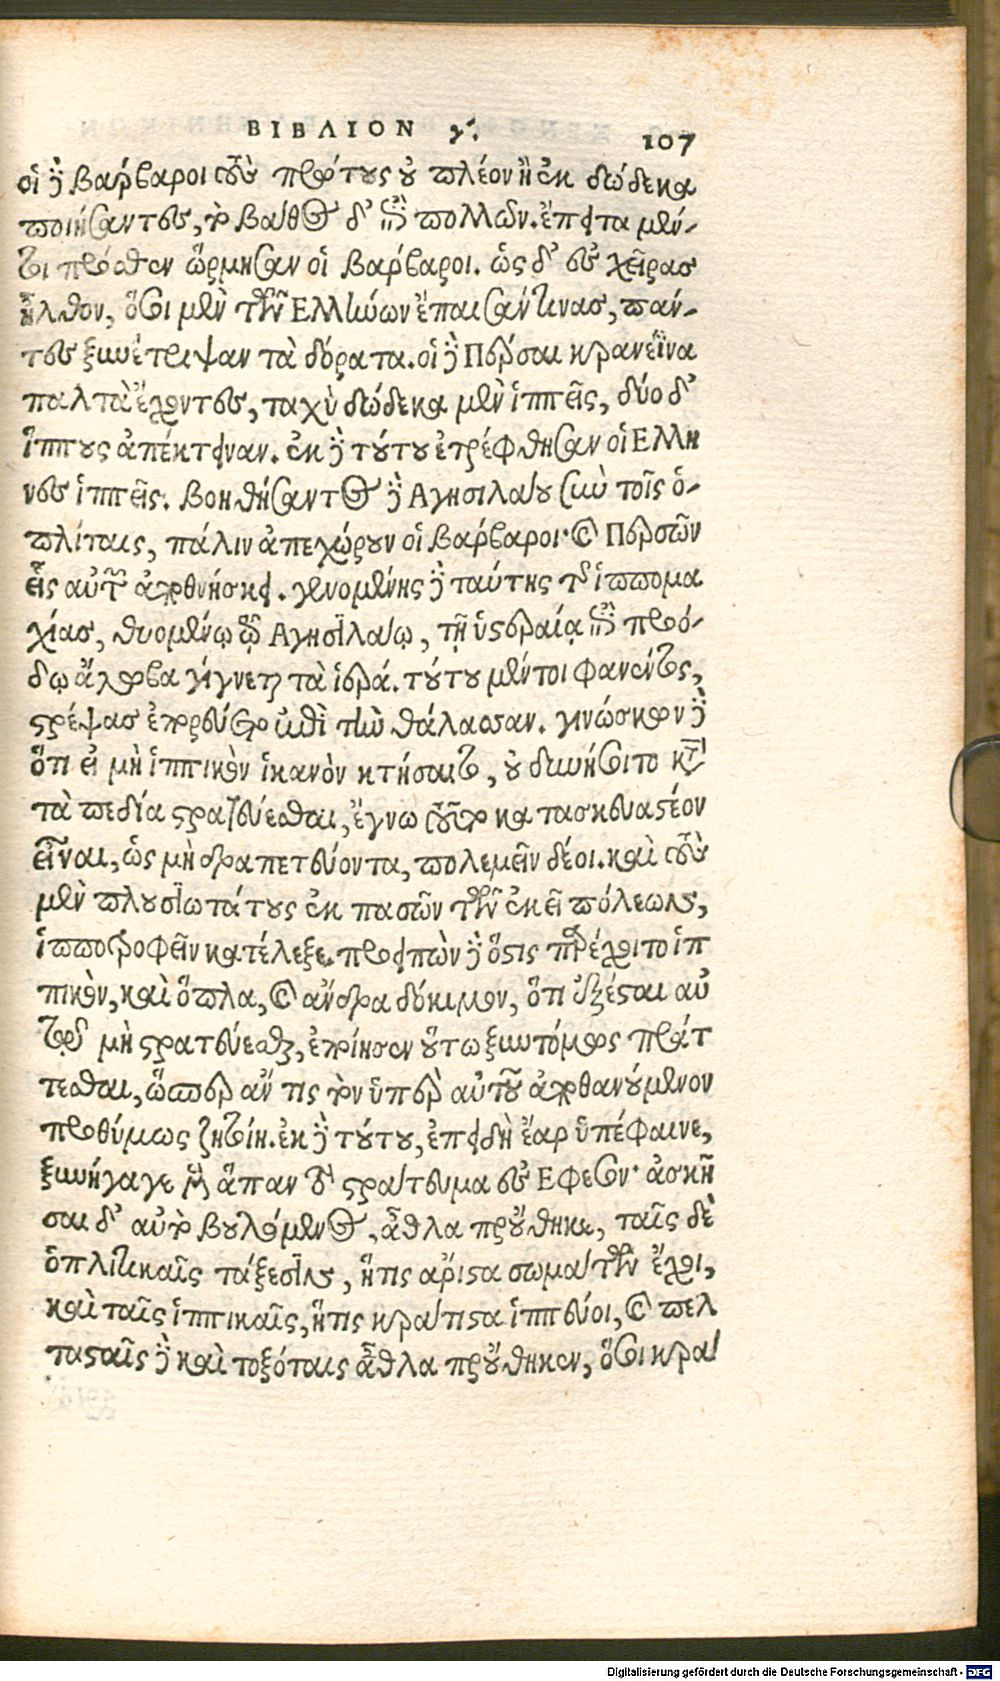 ΒΙΒΛΙΟΝ γ΄. 107
οἱ δὲ βάρβαροι τοὺς πρώτους οὐ πλέον ἢ ἐκ δώδεκα
ποιήσαντες, τὸ βάθος δ' ἐπὶ πολλῶν. ἔπειτα μέν-
τοι πρόσθεν ὥρμησαν οἱ βάρβαροι. ὡς δ' ἐς χεῖρας
ἦλθον, ὅσοι μὲν τῶν Ελλήνων ἔπαισάν τινας, πάν-
τες ξυνέτριψαν τὰ δόρατα. οἱ δὲ Πέρσαι κρανέϊνα
παλτὰ ἔχοντες, ταχὺ δώδεκα μὲν ἱππεῖς, δύο δ'
ἵππους ἀπέκτειναν. ἐκ δὲ τούτου ἐτρέφθησαν οἱ Ελλη
νες ἱππεῖς. βοηθήσαντος δὲ Αγησιλάου σὺν τοῖς ὁ-
πλίταις, πάλιν ἀπεχώρουν οἱ βάρβαροι· καὶ Περσῶν
εἷς αὐτῶν ἀποθνήσκει. γενομένης δὲ ταύτης τῆς ἱππομα
χίας, θυομένῳ τῷ Αγησιλάῳ, τῇ ὑστεραίᾳ ἐπὶ προό-
δῳ ἄλοβα γίγνεται τὰ ἱερά. τούτου μέντοι φανέντος,
στρέψας ἐπορεύετο ἐπὶ τὴν θάλασσαν. γινώσκων δὲ
ὅτι εἰ μὴ ἱππικὸν ἱκανὸν κτήσαιτο, οὐ δυνήσοιτο κατὰ
τὰ πεδία στρατεύεσθαι, ἔγνω τοῦτο κατασκευαστέον
εἶναι, ὡς μὴ δραπετεύοντα, πολεμεῖν δέοι. καὶ τοὺς
μὲν πλουσιωτάτους ἐκ πασῶν τῶν ἐκεῖ πόλεων,
ἱπποτροφεῖν κατέλεξε. προειπὼν δὲ ὅστις παρέχοιτο ἱπ
πικὸν, καὶ ὅπλα, καὶ ἄνδρα δόκιμον, ὅτι ἐξέσται αὐ
τῷ μὴ στρατεύεσθαι, ἐποίησεν οὕτω ξυντόμως πράτ
τεσθαι, ὥσπερ ἄν τις τὸν ὑπὲρ αὐτοῦ ἀποθανούμενον
προθύμως ζητοίη. ἐκ δὲ τούτου, ἐπειδὴ ἔαρ ὑπέφαινε,
ξυνήγαγε μὲν ἅπαν τὸ στράτευμα ἐς Εφεσον· ἀσκῆ
σαι δ' αὐτὸ βουλόμενος, ἆθλα προὔθηκε, ταῖς δὲ
ὁπλιτικαῖς τάξεσιν, ἥτις ἄριστα σωμάτων ἔχοι,
καὶ ταῖς ἱππικαῖς, ἥτις κράτιστα ἱππεύοι, καὶ πελ
τασταῖς δὲ καὶ τοξόταις ἆθλα προὔθηκεν, ὅσοι κρά